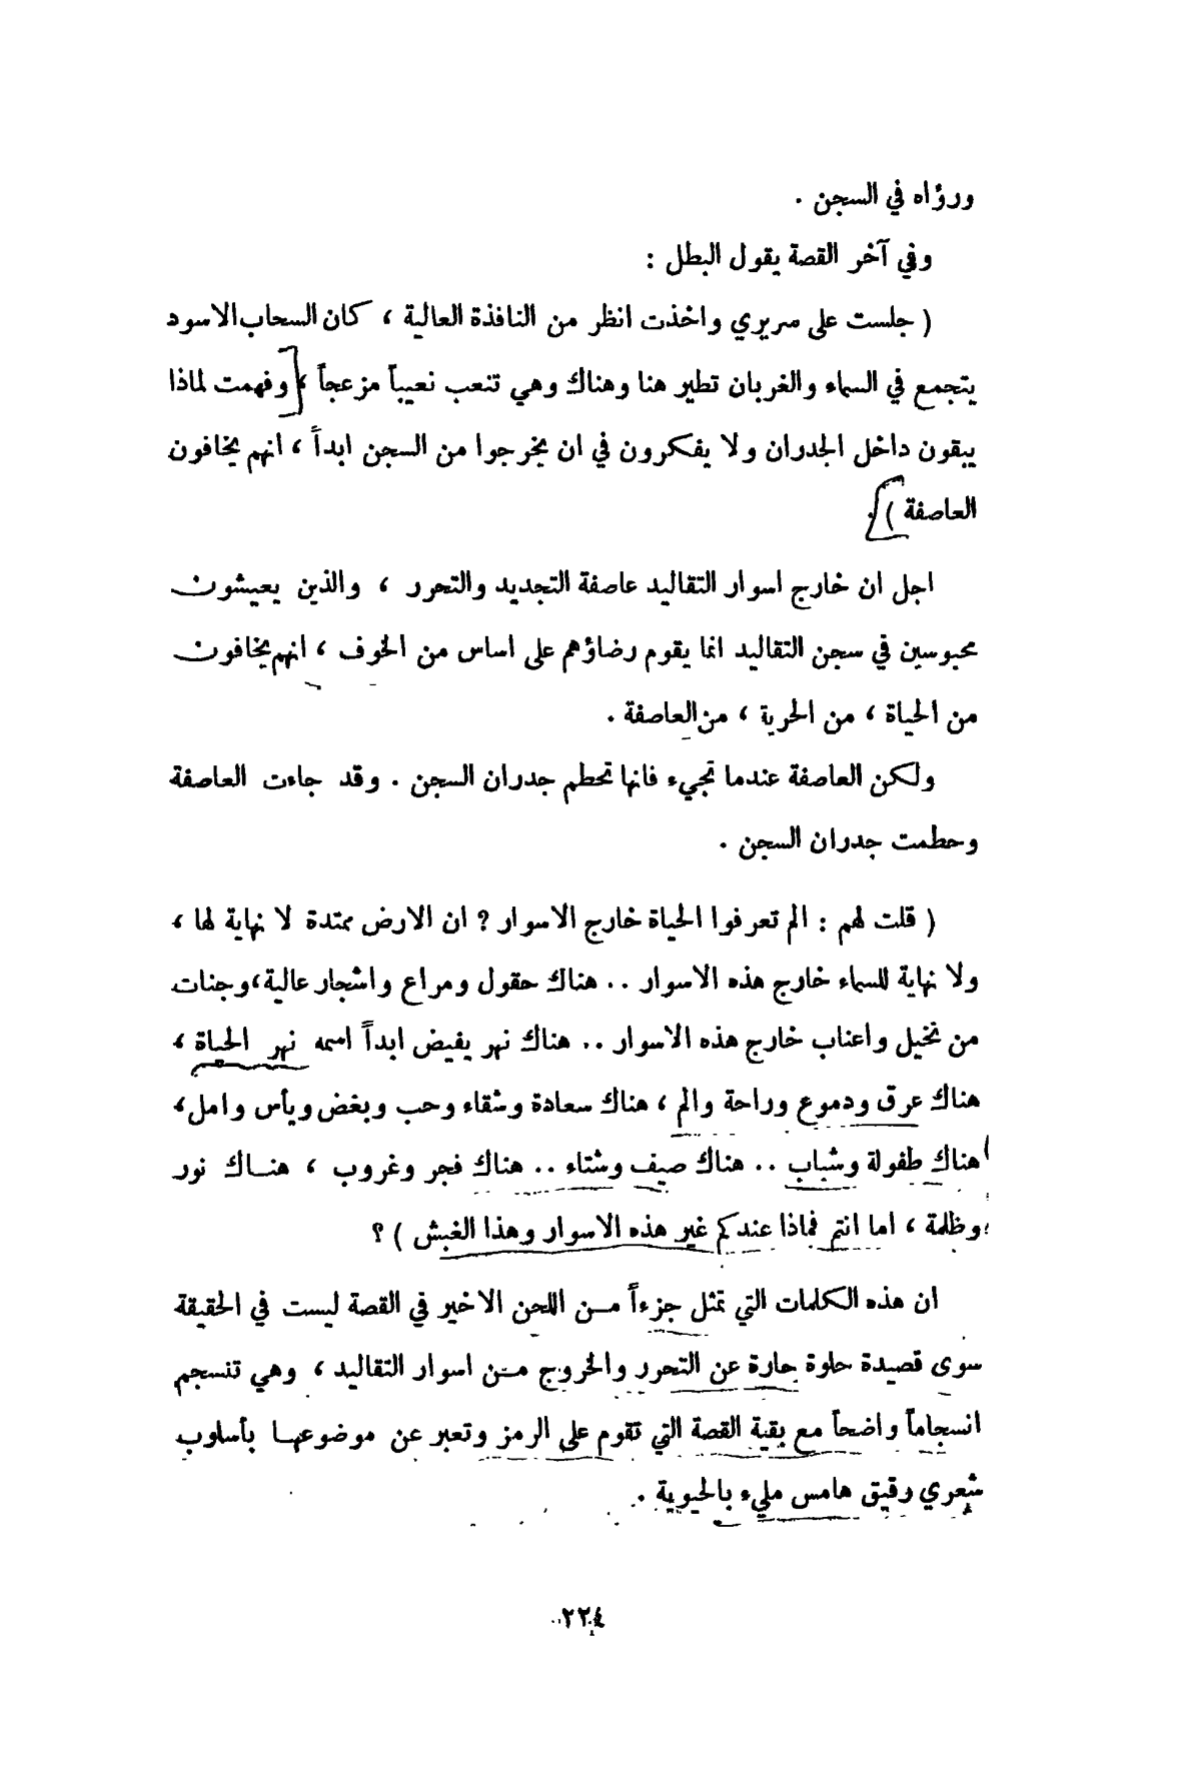 ورؤاه في السجن .
وفي آخر القصة يقول البطل :
( جلست على سريري واخذت انظر من النافذة العالية ، كان السحاب الاسود
يتجمع في السماء والغربان تطير هنا وهناك وهي تنعب نعيباً مزعجاً ، وفهمت لماذا
يبقون داخل الجدران ولا يفكرون في ان يخرجوا من السجن ابداً ، انهم يخافون
العاصفة ) .
اجل ان خارج اسوار التقاليد عاصفة التجديد والتحرر ، والذين يعيشون
محبوسين في سجن التقاليد انما يقوم رضاؤهم على اساس من الخوف ، انهم يخافون
من الحياة ، من الحرية ، من العاصفة .
ولكن العاصفة عندما تجيء فانها تحطم جدران السجن . وقد جاءت العاصفة
وحطمت جدران السجن .
( قلت لهم : الم تعرفوا الحياة خارج الاسوار ? ان الارض ممتدة لا نهاية لها ،
ولا نهاية للسماء خارج هذه الاسوار .. هناك حقول ومراع واشجار عالية ، وجنات
من نخيل واعناب خارج هذه الاسوار .. هناك نهر يفيض ابداً اسمه نهر الحياة ،
هناك عرق ودموع وراحة والم ، هناك سعادة وشقاء وحب وبغض ويأس وامل ،
هناك طفولة وشباب .. هناك صيف وشتاء .. هناك فجر وغروب ، هنـاك نور
وظلمة ، اما انتم فماذا عندكم غير هذه الاسوار وهذا الغبش ) ؟
ان هذه الكلمات التي تمثل جزءاً مـن اللحن الاخير في القصة ليست في الحقيقة
سوى قصيدة حلوة حارة عن التحرر والخروج مـن اسوار التقاليد ، وهي تنسجم
انسجاماً واضحاً مع بقية القصة التي تقوم على الرمز وتعبر عن موضوعهـا بأسلوب
شعري رقيق هامس مليء بالحيوية .
٢٢٤